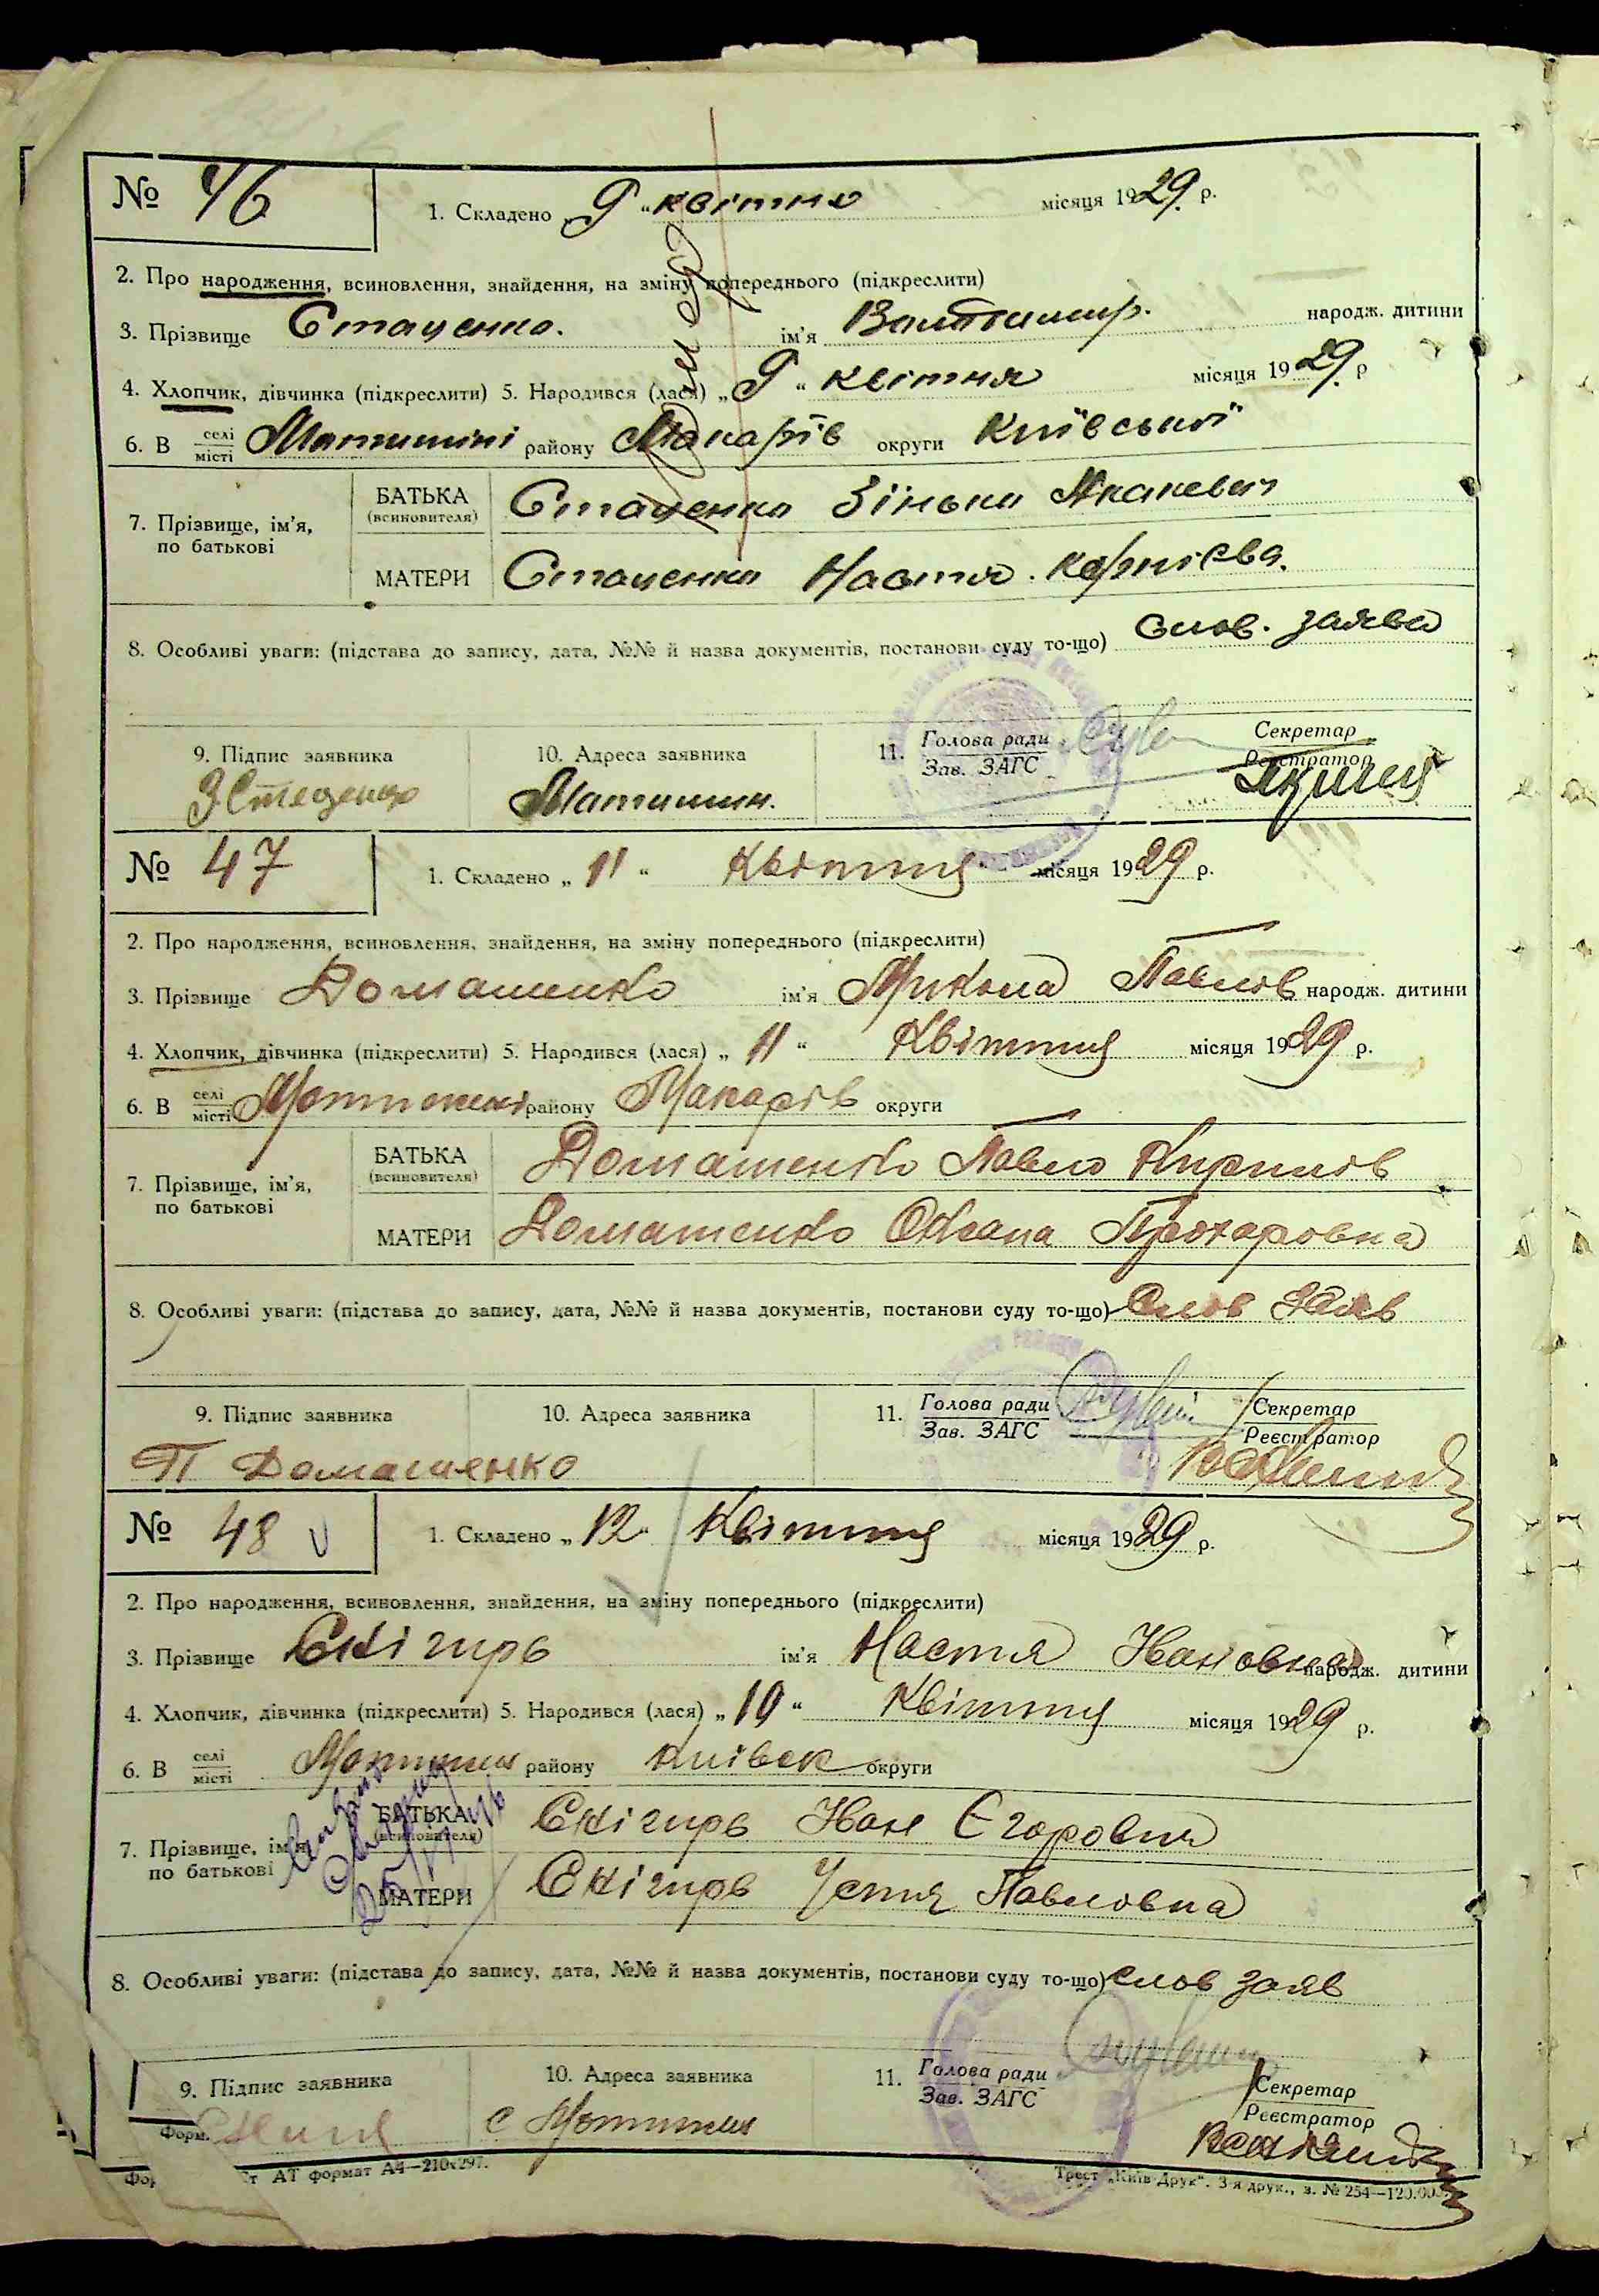 № 46 1. Складено „9“ квітня місяця 1929 р.
2. Про народження, всиновлення, знайдення, на зміну попереднього (підкреслити)
3. Прізвище Стаценко. ім'я народж. дитини
4. Хлопчик, дівчинка (підкреслити) 5. Народився (лася) „9“ квітня місяця 1929 р
6. В селі місті району Макарів округи Київської
7. Прізвище, ім'я, по батькові
БАТЬКА (всиновителя) Стаценко Зінько
МАТЕРИ Стаценко Настя. Корнієва.
8. Особливі уваги: (підстава до запису, дата, №№ й назва документів, постанови суду то-що) Слов. заява
9. Підпис заявника 10. Адреса заявника 11. Голова ради Зав. ЗАГС Секретар Реєстратор
№ 47 1. Складено „11“ Квітня місяця 1929 р.
2. Про народження, всиновлення, знайдення, на зміну попереднього (підкреслити)
3. Прізвище Домашенко ім'я Микола Павлов народж. дитини
4. Хлопчик, дівчинка (підкреслити) 5. Народився (лася) „11“ Квітня місяця 1929 р.
6. В селі місті району Макарів округи
7. Прізвище, ім'я, по батькові
БАТЬКА (всиновителя) Домашенко Павло Кирилів
МАТЕРИ Домашенко Оксана Прохаровна
8. Особливі уваги: (підстава до запису, дата, №№ й назва документів, постанови суду то-що) Слов Заяв
9. Підпис заявника 10. Адреса заявника 11. Голова ради Зав. ЗАГС Секретар Реєстратор
П Домашенко
№ 48 1. Складено „12“ Квітня місяця 1929 р.
2. Про народження, всиновлення, знайдення, на зміну попереднього (підкреслити)
3. Прізвище Скігирь ім'я Настя Івановна народж. дитини
4. Хлопчик, дівчинка (підкреслити) 5. Народився (лася) „10“ Квітня місяця 1929 р.
6. В селі місті району Київск округи
7. Прізвище, ім'я, по батькові
БАТЬКА (всиновителя) Скігирь Іван Єгорович
МАТЕРИ Скігирь Устя Павловна
8. Особливі уваги: (підстава до запису, дата, №№ й назва документів, постанови суду то-що) слов заяв
9. Підпис заявника 10. Адреса заявника 11. Голова ради Зав. ЗАГС Секретар Реєстратор
Форм.
АТ формат А4—210х297. Трест „Київ-Друк“. 3-я друк., з. № 254—120.000